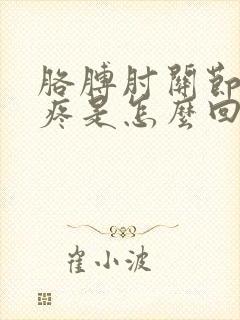 胳膊肘關節
疼是怎麼回
崔小波